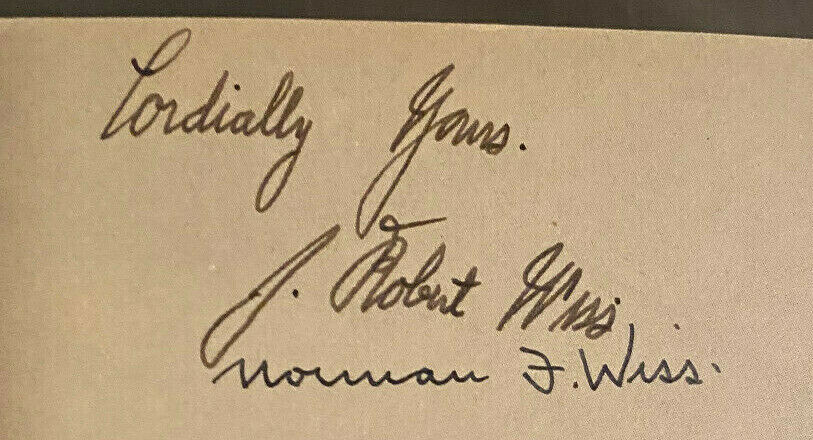 Cordially Yours.
J. Robert Wiss
Norman F. Wiss.